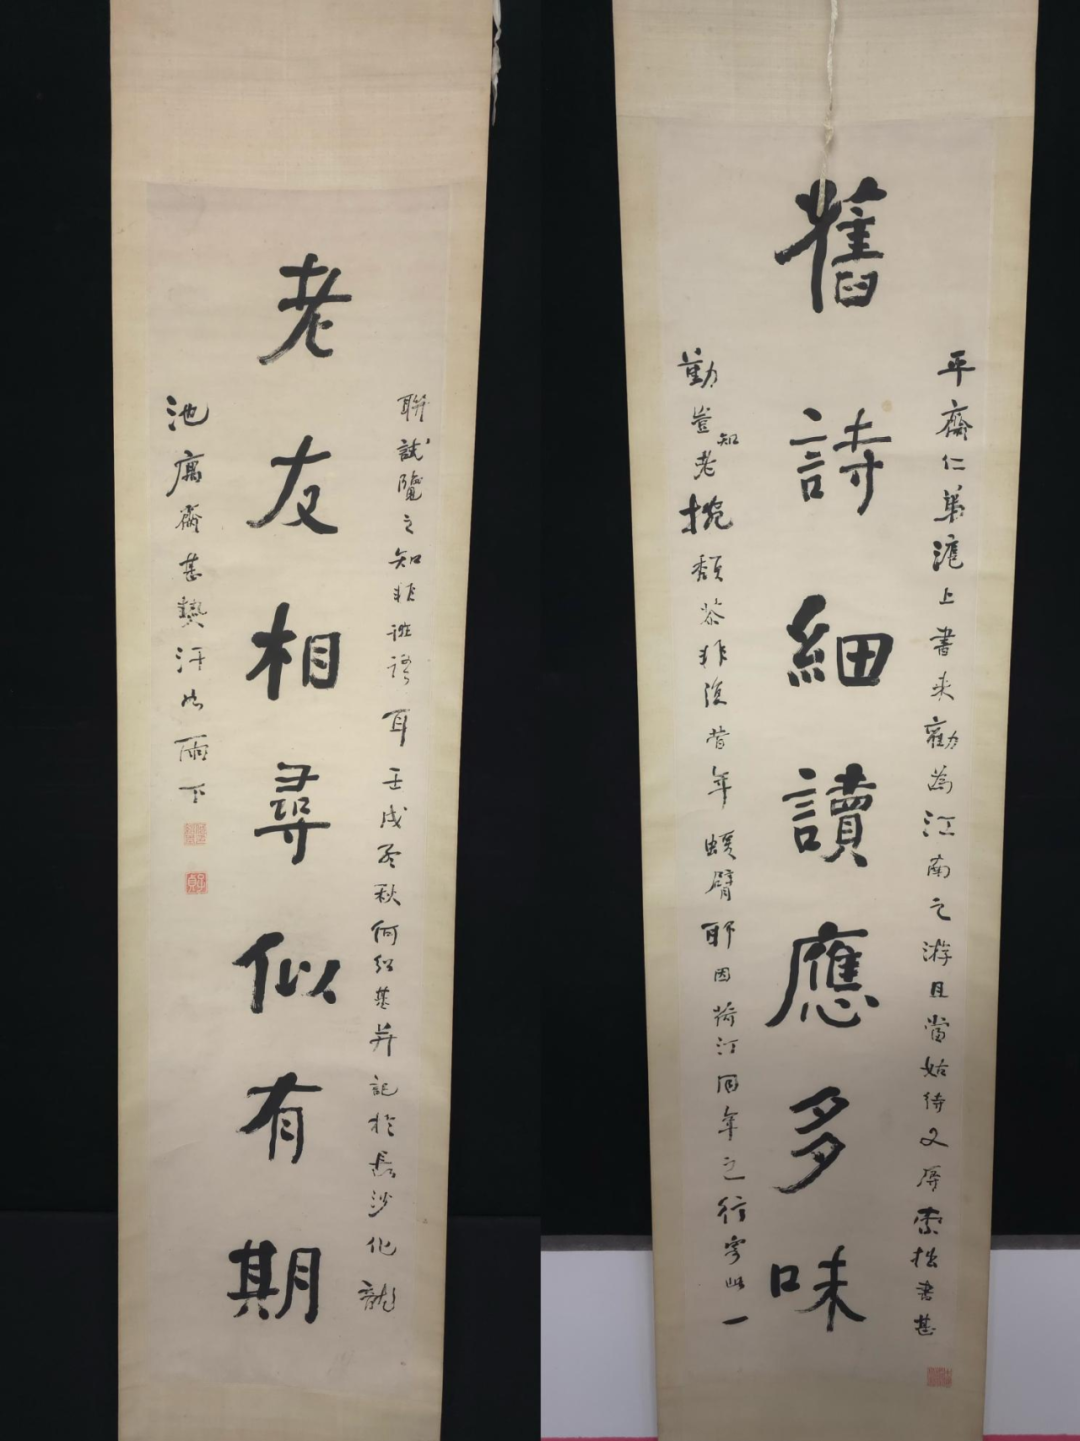 舊詩細讀應多味
平齋仁弟滬上書來勸為江南之游且當姑待又屢索拙書甚
勤豈知老捥頹苶非復昔年蝯臂耶因荷汀同年之行寄此一
老友相尋似有期
聯試覽之知非誑語耳壬戌孟秋何紹基并記於長沙化龍
池寓齋甚熱汗如雨下